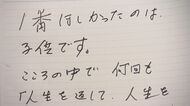 1番忙しかったのは、
子供です。
こころの中で 何回も
「人生を返して、人生を